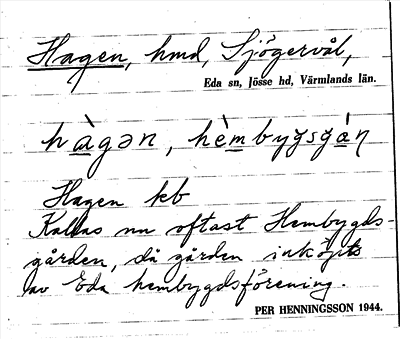 Hagen, hmd, Sjögervål,
Eda sn, Jösse hd, Värmlands län.
hàgən, hèmbygsgán
Hagen kb
Kallas nu oftast Hembygds-
gården, då gården inköpts
av Eda hembygdsförening.
PER HENNINGSSON 1944.